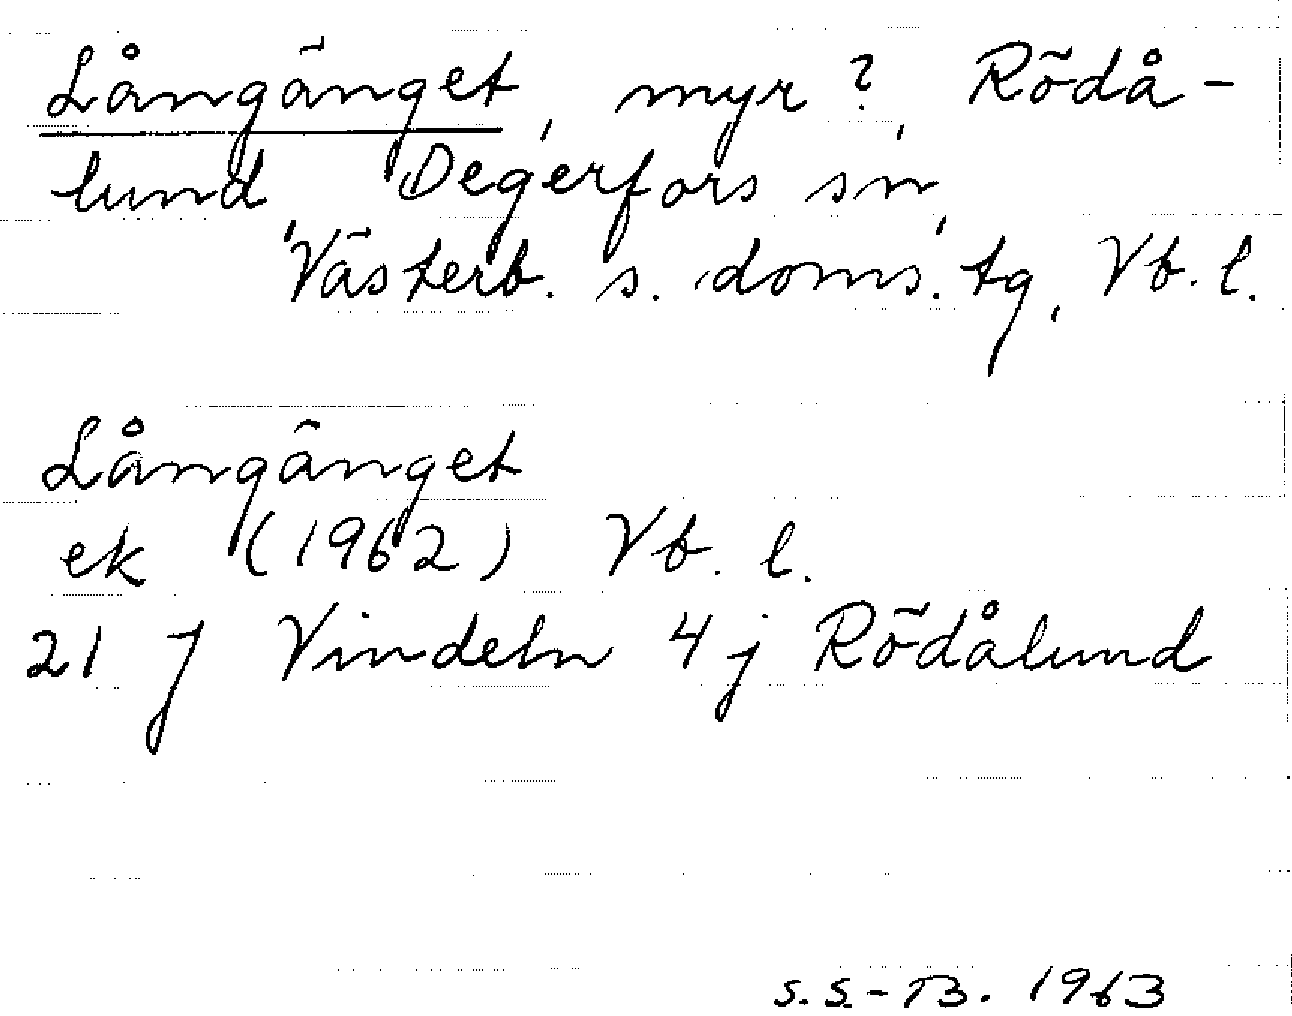 Långänget, myr?, Rödå-
lund, Degerfors sn,
Västerb. s. doms. tg, Vb. l.
Långänget
ek (1962) Vb. l.
21 J Vindeln 4 j Rödålund
S.S.-B. 1963